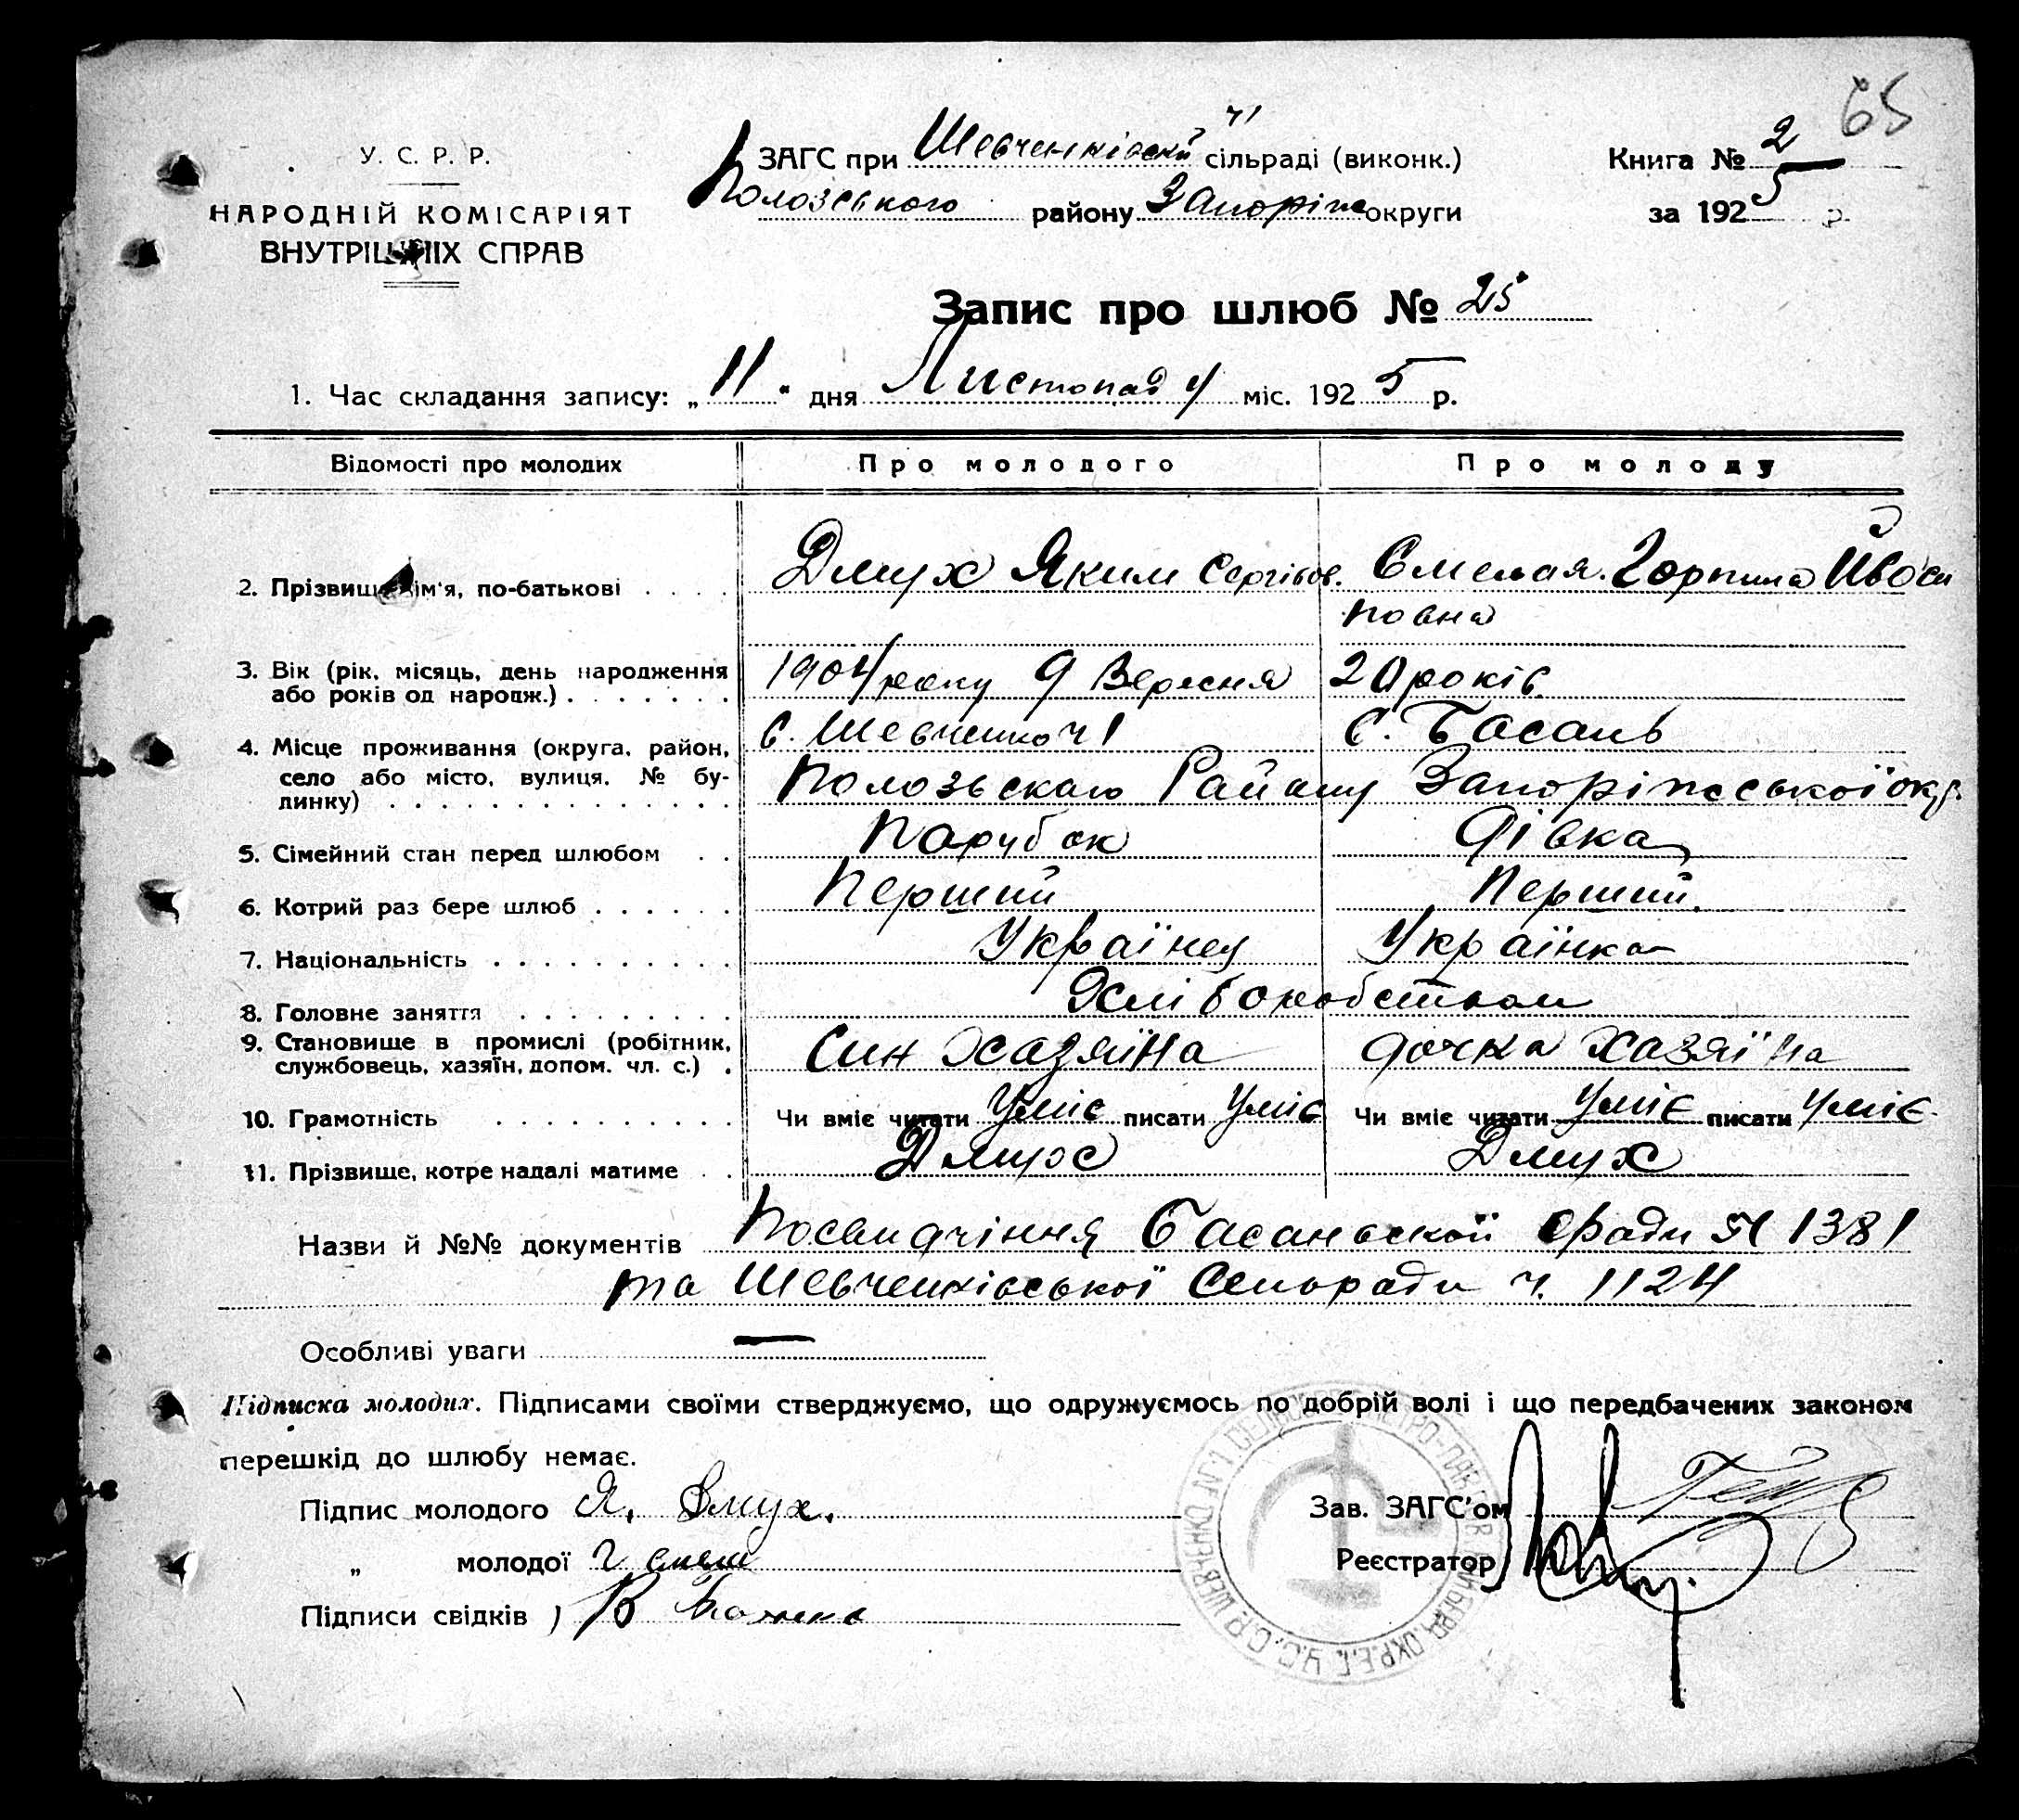 65
У. С. Р. Р.
НАРОДНІЙ КОМІСАРІЯТ
ВНУТРІШНІХ СПРАВ
ЗАГС при Шевченківскій ч1 сільраді (виконк.)
Полозського району Запоріж округи
Книга № 2
за 1925 р.
Запис про шлюб № 25
1. Час складання запису: „ 11 " дня Листопад у міс. 1925 р.
Відомості про молодих Про молодого Про молоду
2. Прізвище, ім'я, по-батькові . . . . Дмух Яким Сергієв. Смелая. Горпина Йвоси
повна
3. Вік (рік, місяць, день народження 1904 року 9 Вересня 20 років
або років од народж.) . . . . . . .
4. Місце проживання (округа, район, с. Шевченко ч1 С. Басань
село або місто, вулиця, № бу- Полозьскаго Району Запоріжської окр.
динку) . . . . . . . . . . . . . .
5. Сімейний стан перед шлюбом . . Парубок Дівка
6. Котрий раз бере шлюб . . . . . . Перший Перший.
7. Національність . . . . . . . . . . Українец Українка
8. Головне заняття . . . . . . . . . Хліборобством
9. Становище в промислі (робітник, Син Хазяїна дочка Хазяїна
службовець, хазяїн, допом. чл. с.) .
10. Грамотність . . . . . . . . . . Чи вміє читати Уміє писати Уміє Чи вміє читати Уміє писати Уміє
11. Прізвище, котре надалі матиме . . Дмух Дмух
Назви й №№ документів Посвидчіння Басаньской сради № 1381
та Шевченківської Сельради ч. 1124
Особливі уваги —
Підписка молодих. Підписами своїми стверджуємо, що одружуємось по добрій волі і що передбачених законом
перешкід до шлюбу немає.
Підпис молодого Я. Дмух.
„ молодої Г смел
Підписи свідків ) В
Зав. ЗАГС'ом
Реєстратор
У.С.С.Р. ШЕВЧЕНКО №1